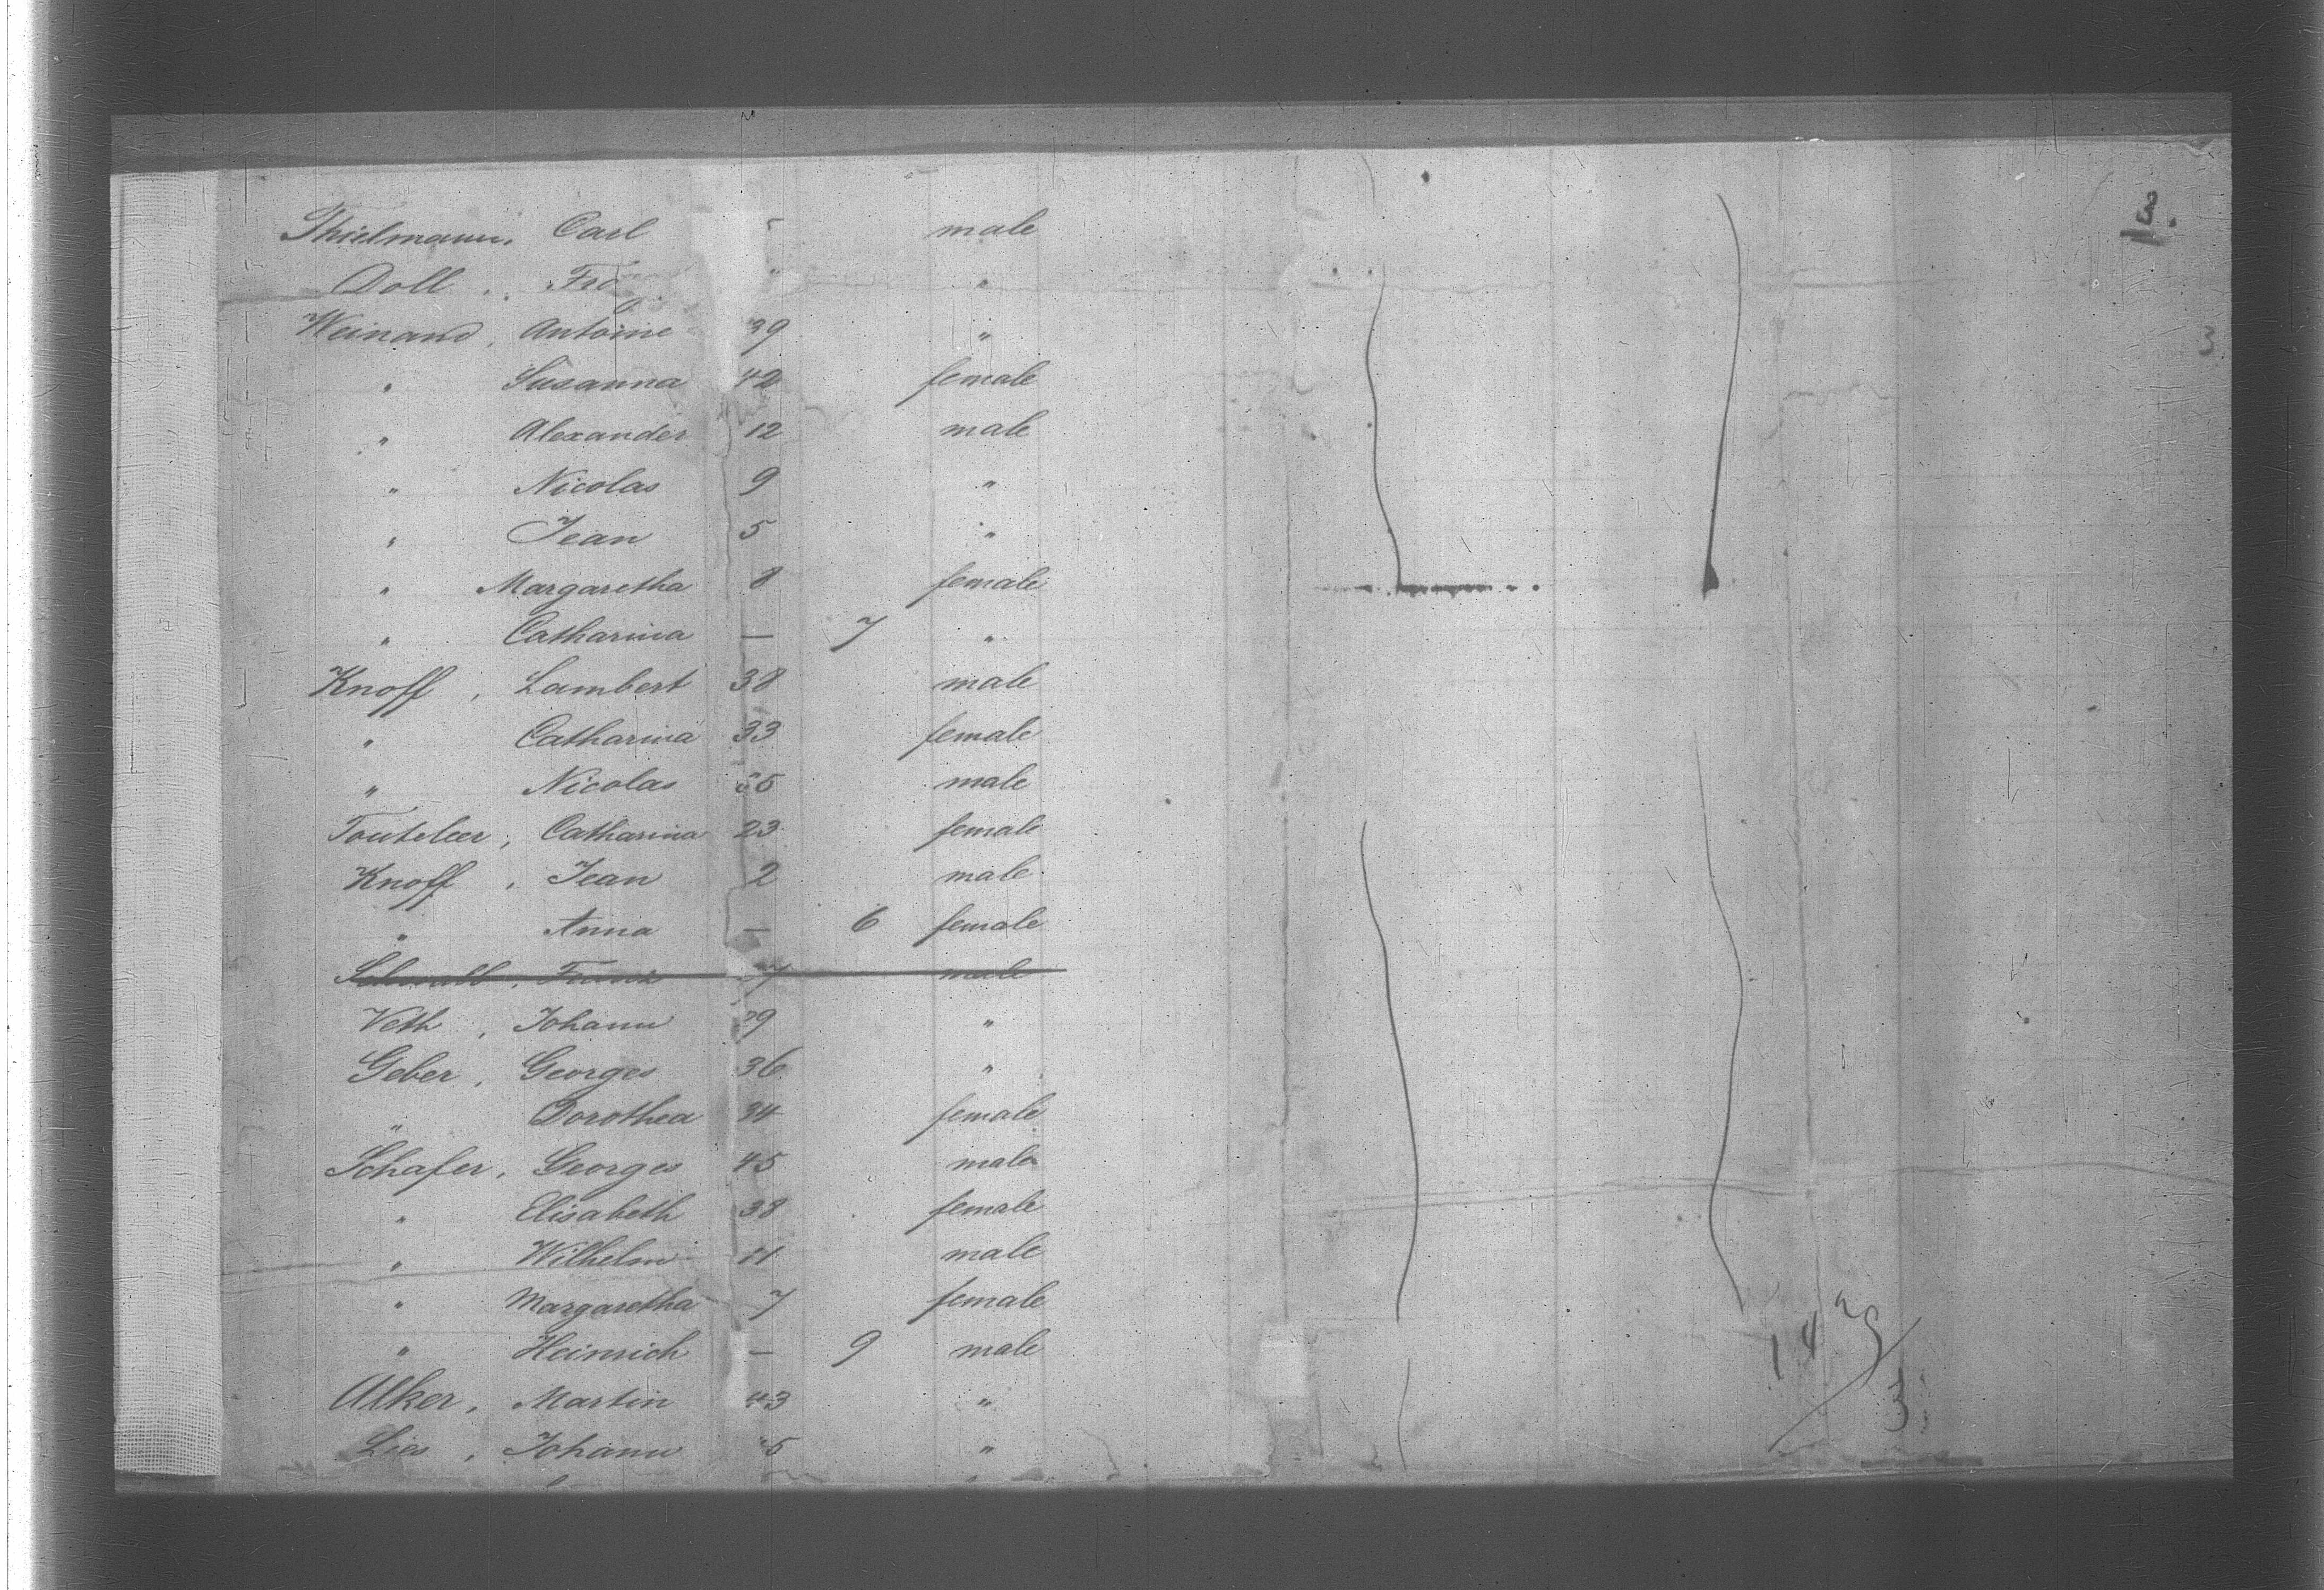 Thielmann, Carl male
Doll, "
Weinand, Antoine 39 "
" Susanna 42 female
" Alexander 12 male
" Nicolas 9 "
" Jean 5 "
" Margaretha 8 female
" Catharina — 7 "
Knoff, Lambert 38 male
" Catharina 33 female
" Nicolas male
Catharina 23 female
Knoff, Jean 2 male
" Anna — 6 female
male
Veth, Johann "
Geber, Georges 36 "
" Dorothea 34 female
Schafer, Georges 45 male
" Elisabeth 38 female
" Wilhelm 11 male
" Margaretha 7 female
" Heinrich — 9 male
Alker, Martin 43 "
Lies, Johann "
3.
3